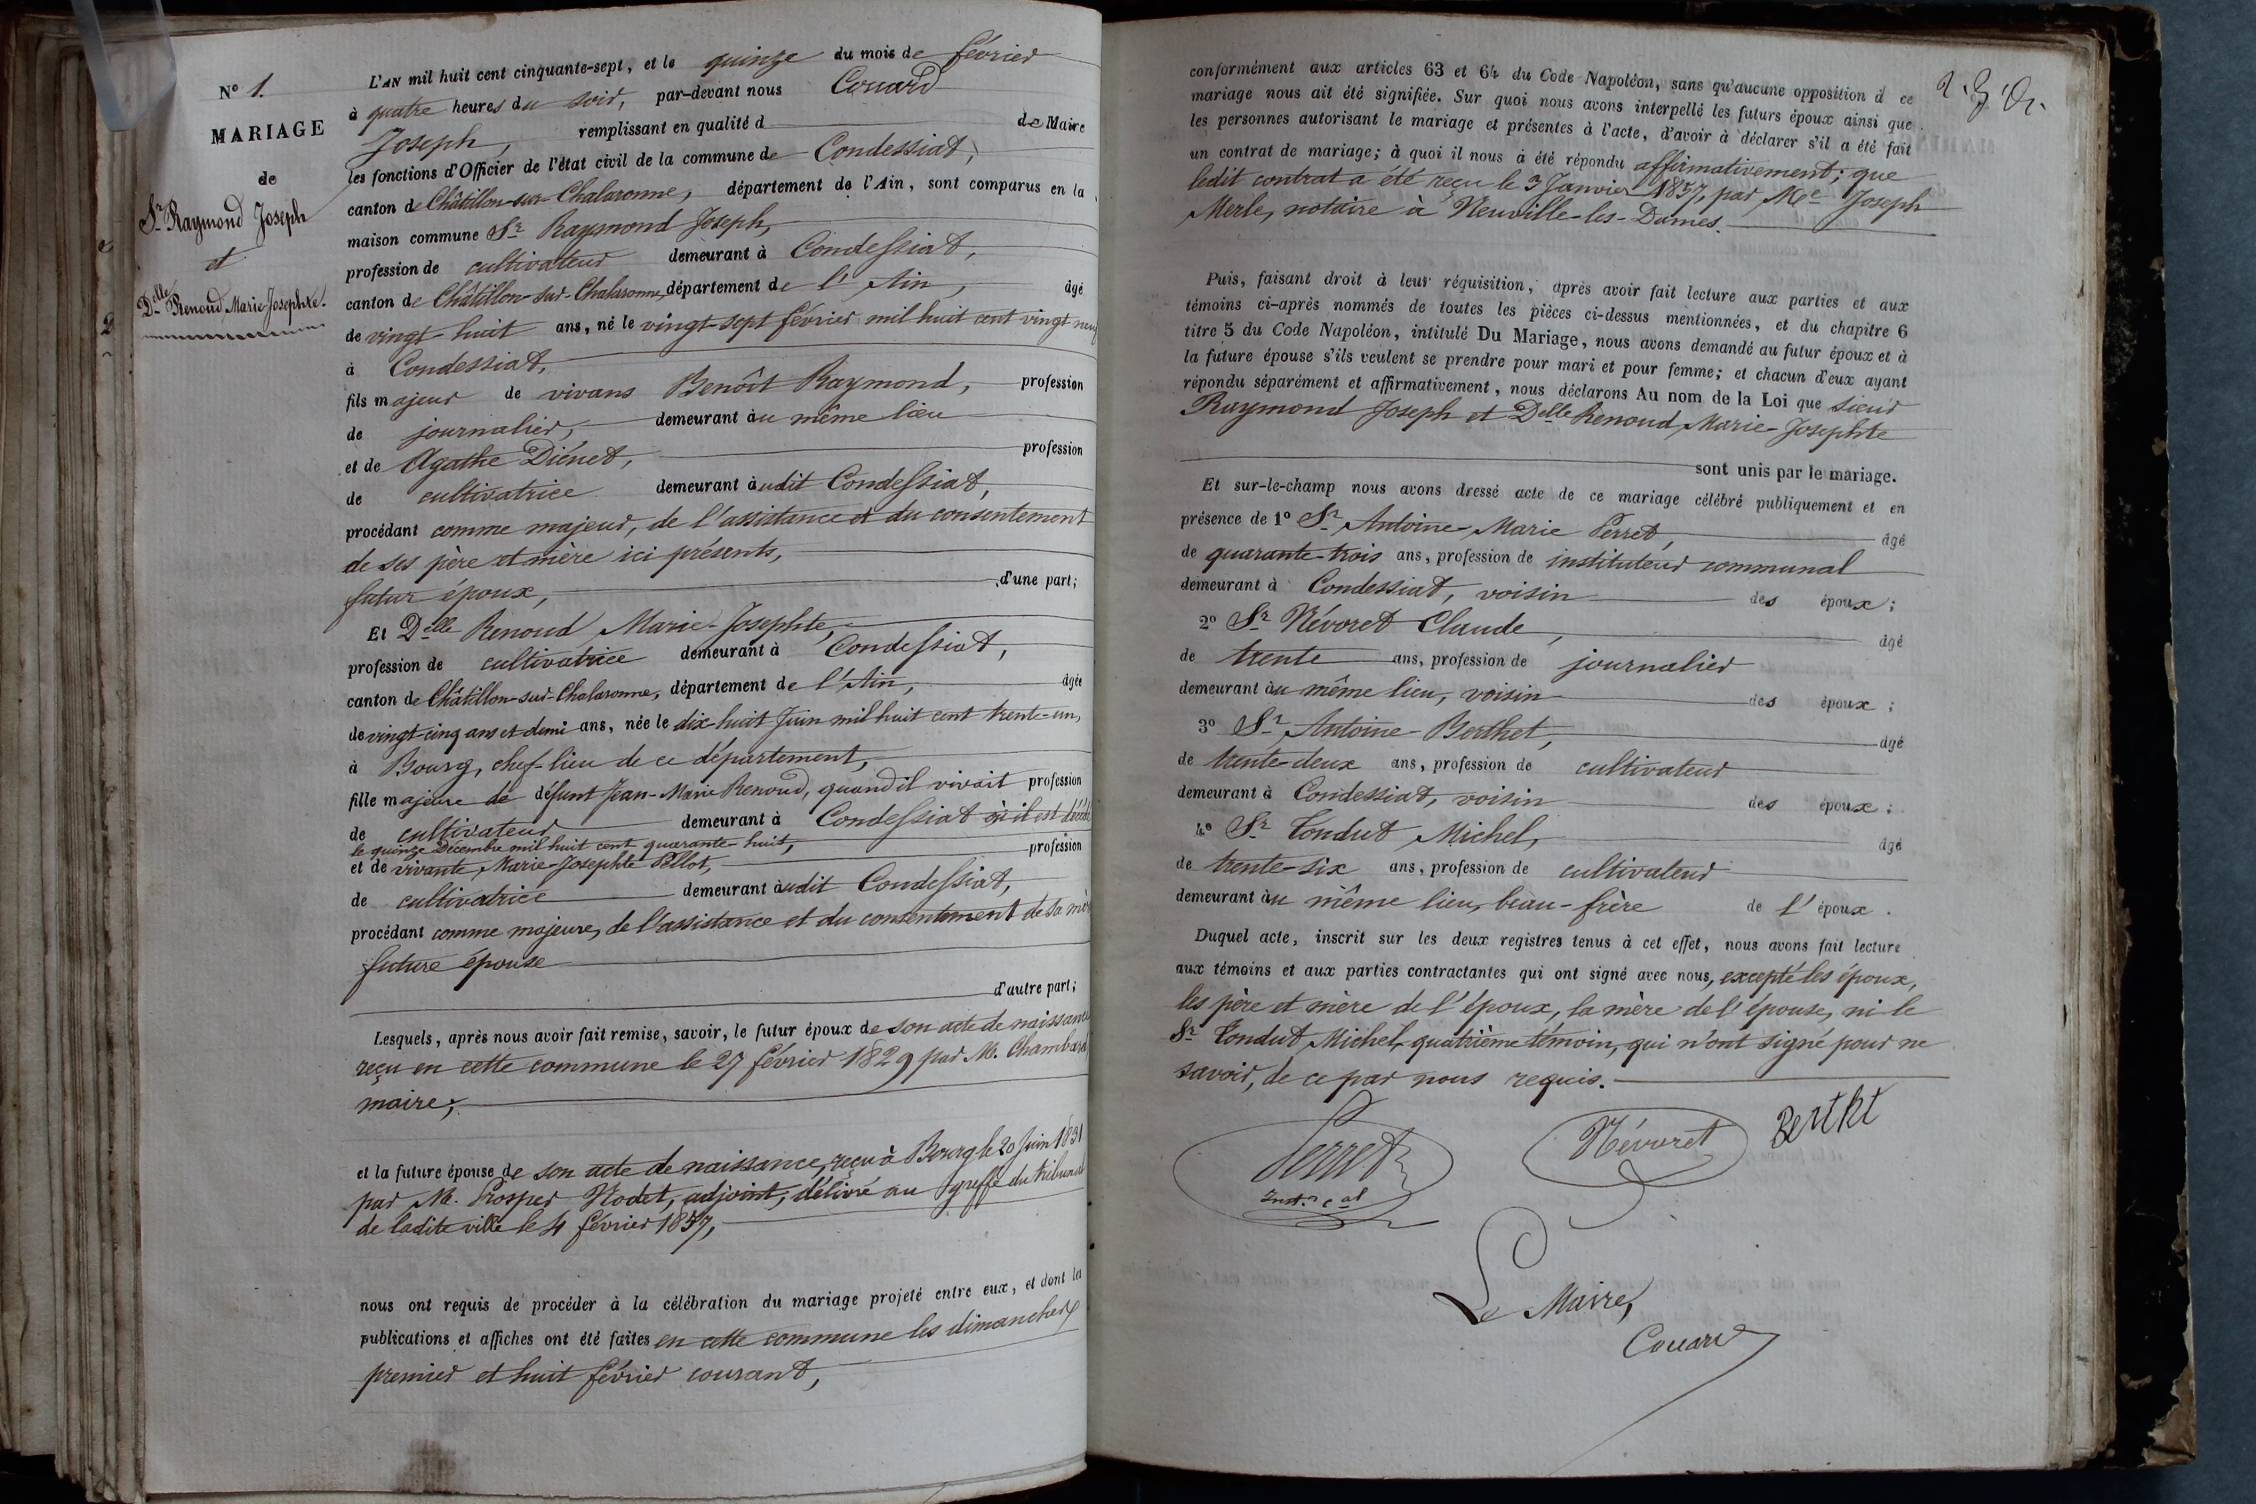 N° 1.
MARIAGE
de
Sr Raymond Joseph
et
Delle Renoud Marie-Josephte.
L'AN mil huit cent cinquante-sept, et le quinze du mois de février
à quatre heures du soir, par-devant nous Couard
Joseph, remplissant en qualité d de Maire
les fonctions d'Officier de l'état civil de la commune de Condessiat,
canton de Châtillon-sur-Chalaronne, département de l'Ain, sont comparus en la
maison commune Sr Raymond Joseph,
profession de cultivateur demeurant à Condessiat,
canton de Châtillon-sur-Chalaronne, département de l'Ain, âgé
de vingt-huit ans, né le vingt-sept février mil huit cent vingt neuf
à Condessiat,
fils majeur de vivans Benoît Raymond, profession
de journalier, demeurant au même lieu
et de Agathe Diénet, profession
de cultivatrice demeurant audit Condessiat,
procédant comme majeur, de l'assistance et du consentement
de ses père et mère ici présents,
futur époux, d'une part;
Et Delle Renoud Marie-Josephte,
profession de cultivatrice demeurant à Condessiat,
canton de Châtillon-sur-Chalaronne, département de l'Ain, âgée
de vingt-cinq ans et demi ans, née le dix-huit Juin mil huit cent trente-un,
à Bourg, chef-lieu de ce département,
fille majeure de défunt Jean-Marie Renoud, quand il vivait profession
de cultivateur demeurant à Condessiat où il est décédé
le quinze Décembre mil huit cent quarante-huit,
et de vivante, Marie-Josephte Pellot, profession
de cultivatrice demeurant audit Condessiat,
procédant comme majeure, de l'assistance et du consentement de sa mère
future épouse
d'autre part;
Lesquels, après nous avoir fait remise, savoir, le futur époux de son acte de naissance
reçu en cette commune le 27 février 1829 par M. Chambard
maire;
et la future épouse de son acte de naissance, reçu à Bourg le 20 Juin 1831
par M. Prosper Hodet, adjoint, délivré au greffe du tribunal
de ladite ville le 4 février 1857,
nous ont requis de procéder à la célébration du mariage projeté entre eux, et dont les
publications et affiches ont été faites en cette commune les dimanches
premier et huit février courant,
conformément aux articles 63 et 64 du Code Napoléon, sans qu'aucune opposition à ce
mariage nous ait été signifiée. Sur quoi nous avons interpellé les futurs époux ainsi que
les personnes autorisant le mariage et présentes à l'acte, d'avoir à déclarer s'il a été fait
un contrat de mariage; à quoi il nous a été répondu affirmativement; que
ledit contrat a été reçu le 3 Janvier 1857, par Me Joseph
Merle, notaire à Neuville-les-Dames.
Puis, faisant droit à leur réquisition, après avoir fait lecture aux parties et aux
témoins ci-après nommés de toutes les pièces ci-dessus mentionnées, et du chapitre 6
titre 5 du Code Napoléon, intitulé Du Mariage, nous avons demandé au futur époux et à
la future épouse s'ils veulent se prendre pour mari et pour femme; et chacun d'eux ayant
répondu séparément et affirmativement, nous déclarons Au nom de la Loi que sieur
Raymond Joseph et Delle Renoud, Marie-Josephte
sont unis par le mariage.
Et sur-le-champ nous avons dressé acte de ce mariage célébré publiquement et en
présence de 1° Sr Antoine-Marie Perret, âgé
de quarante-trois ans, profession de instituteur communal
demeurant à Condessiat, voisin des époux;
2° Sr Névoret Claude, âgé
de trente ans, profession de journalier
demeurant au même lieu, voisin des époux;
3° Sr Antoine-Berthet, âgé
de trente-deux ans, profession de cultivateur
demeurant à Condessiat, voisin des époux;
4° Sr Tondut Michel, âgé
de trente-six ans, profession de cultivateur
demeurant au même lieu, beau-frère de l'époux.
Duquel acte, inscrit sur les deux registres tenus à cet effet, nous avons fait lecture
aux témoins et aux parties contractantes qui ont signé avec nous, excepté les époux,
les père et mère de l'époux, la mère de l'épouse, ni le
Sr Tondut Michel, quatrième témoin, qui n'ont signé pour ne
savoir, de ce par nous requis.
Perret Névoret Berthet
Instr cal
Le Maire,
Couard